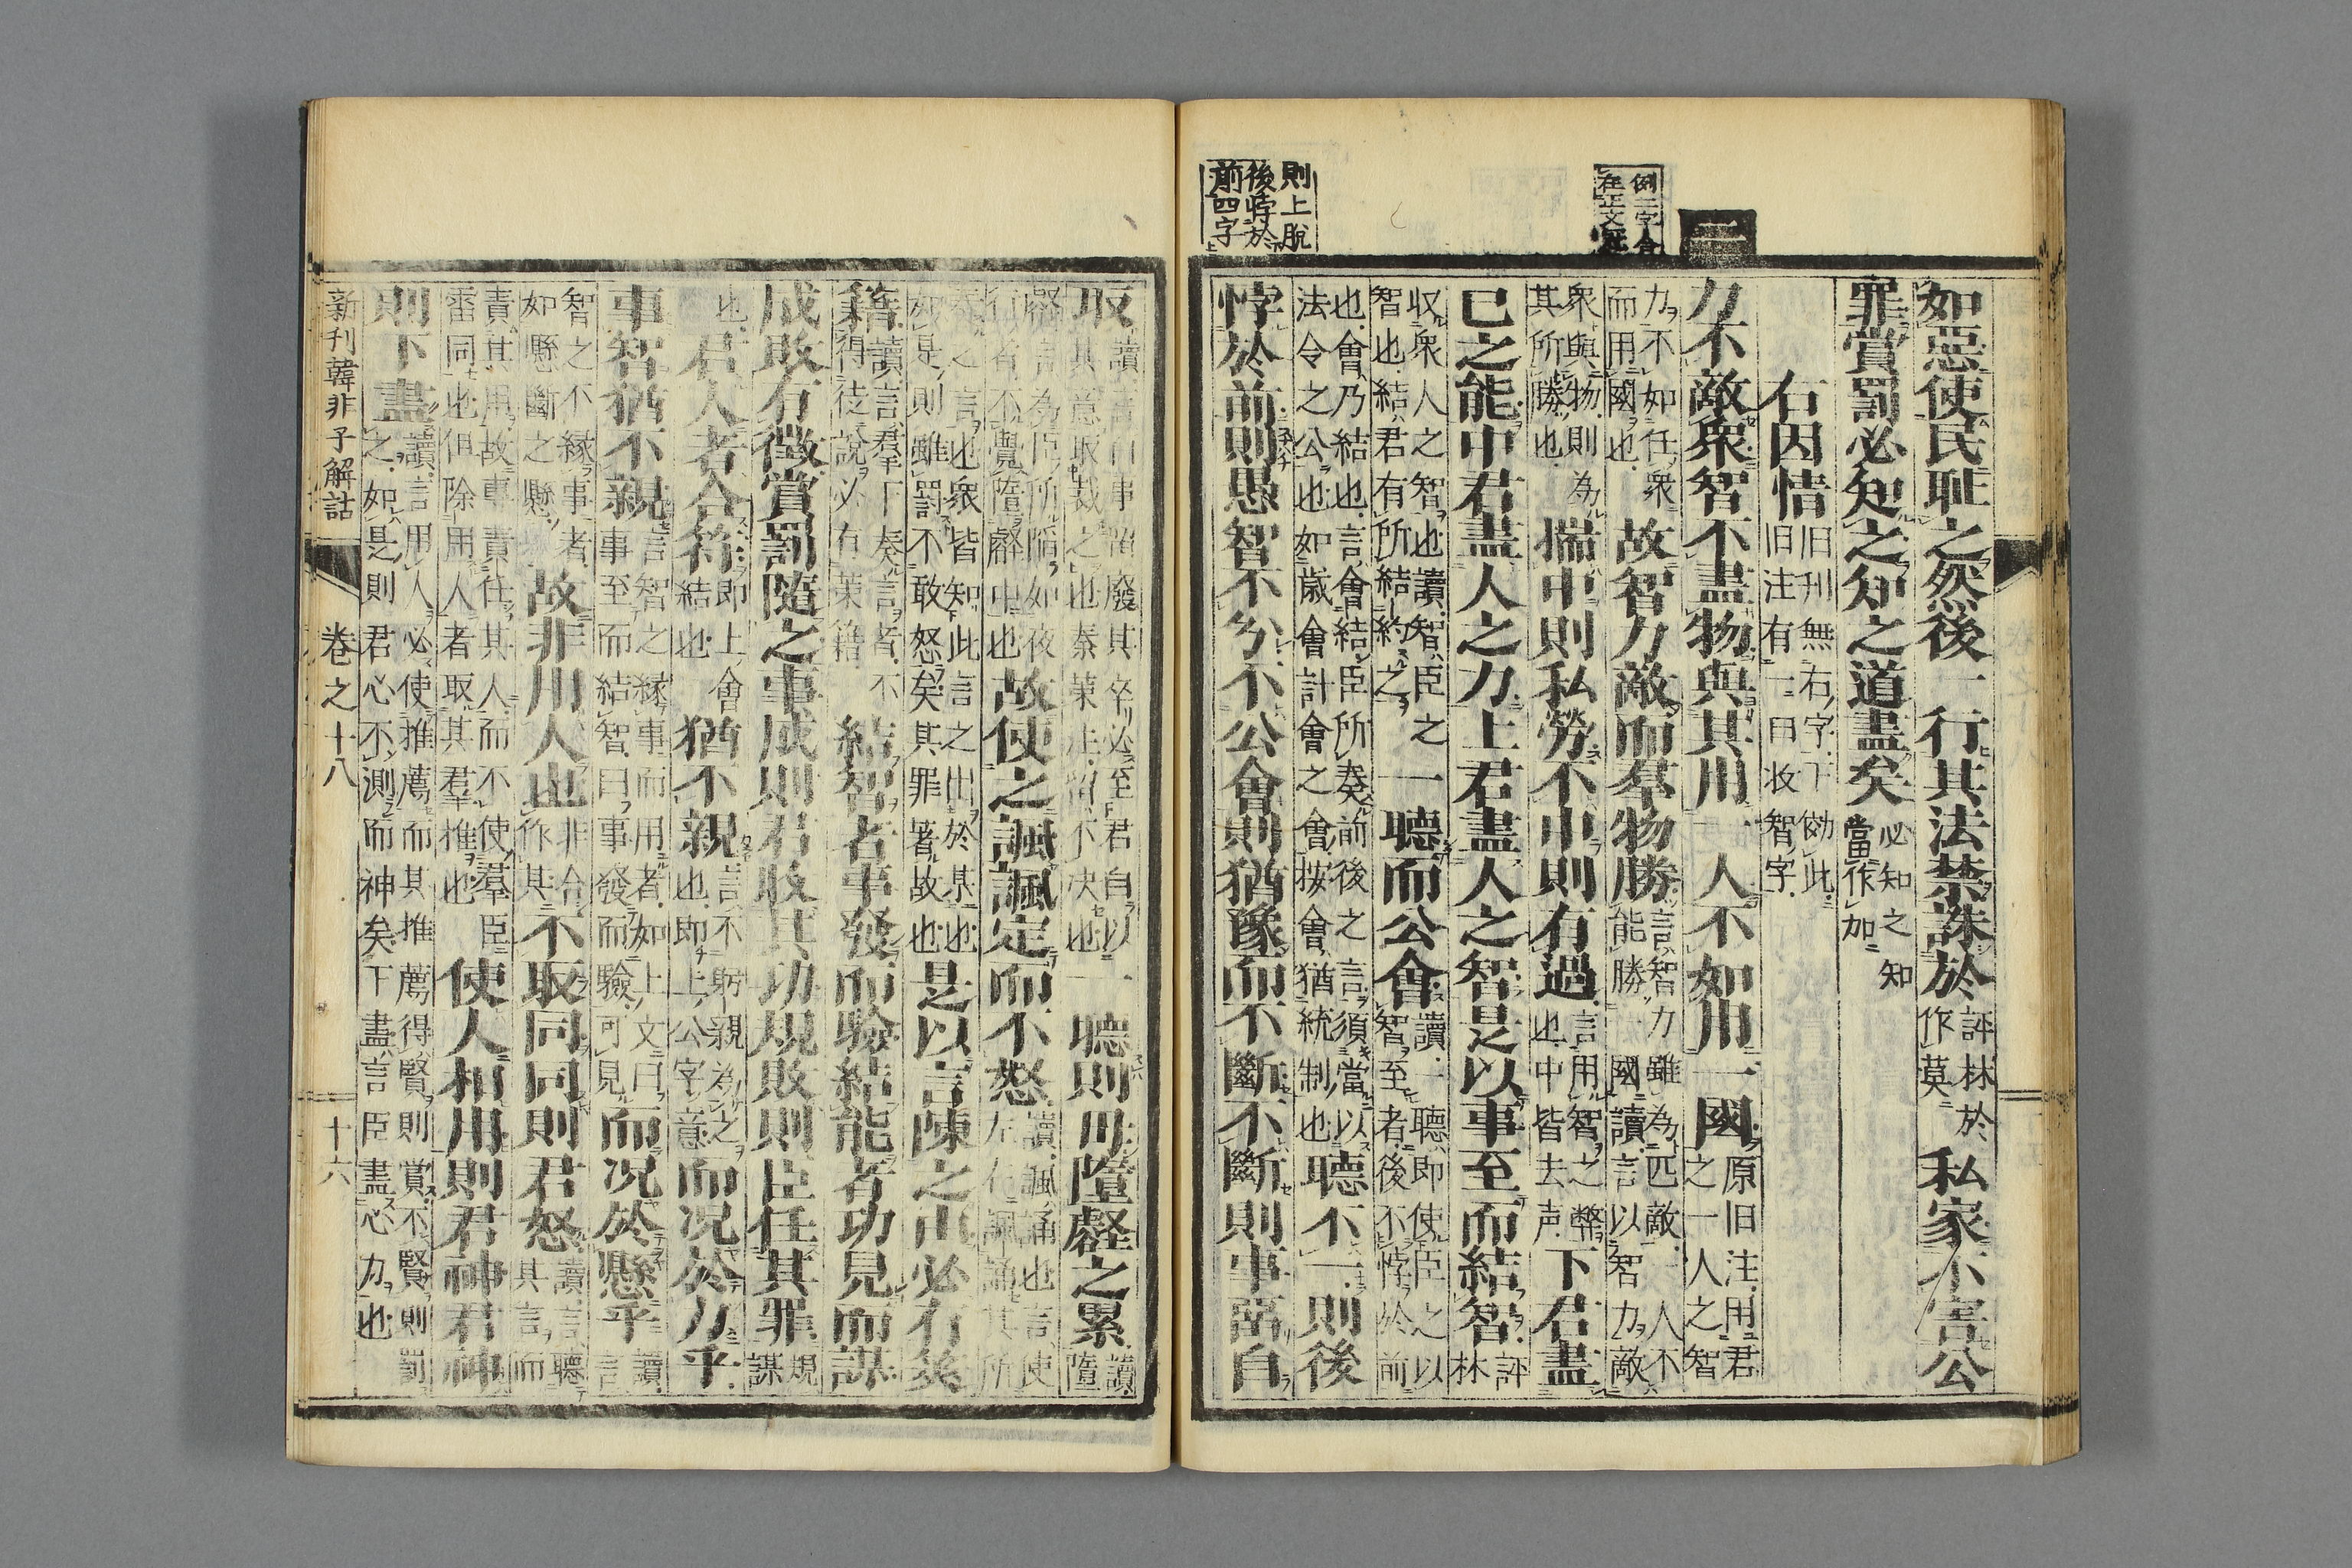 例二字合
在正文
則上脫
後悖於
前四字
如惡使民耻之然後一行其法禁誅於評林於作莫私家不害公
罪賞罰必知之知之道盡矣必知之知當作加
右因情旧刊無右字下傚此旧注有一曰收智字
力不敵衆智不盡物與其用一人不如用一國原旧注用君之一人之智
力不如任衆而用國也故智力敵而羣物勝言智力雖為匹敵一人不能勝一國讀言以智力敵
衆與物則為其所勝也揣中則私勞不中則有過言用智之弊也中皆去声下君盡
己之能中君盡人之力上君盡人之智是以事至而結智評林
収衆人之智也讀智臣之智也結君有所結約之一聽而公會讀一聽即使臣之以智至者後不悖於前
也會乃結也言會結臣所奏前後之言須當以法令之公也如歲會計會之會按會猶統制也聽不一則後
悖於前則愚智不分不公會則猶豫而不斷不斷則事畱自
取讀言事畱廢其卒必至君自以其意取裁之也秦策注畱不决也一聽則毋墮壑之累讀墮
壑言為臣所陷如夜行者不覺墮壑中也故使之諷諷定而不怒讀諷誦也言使左右諷誦其所
奏之言也衆皆知此言之出於某也如是則雖罰不敢怒矣其罪著故也是以言陳之日必有筴
籍讀言羣下奏言者不得徒說必有策籍結智者事發而驗結能者功見而謀
成敗有徵賞罰隨之事成則君收其功規敗則臣任其罪規謀
也君人者合符即上會結也猶不親言不躬親為之也即上公字意而况於力乎
事智猶不親言智之緣事而用者如上文曰事至而結智曰事發而驗可見而况於懸乎讀言
智之不緣事者如懸斷之懸故非用人也非合作其不取同同則君怒讀言聽其言而
責其用故專責任其人而不使羣臣雷同也但除用人者取其羣推也使人相用則君神君神
則下盡讀言用人必使推薦而其推薦得賢則賞不賢則罰之如是則君心不測而神矣下盡言臣盡心力也
新刊韓非子解詁　卷之十八　十六